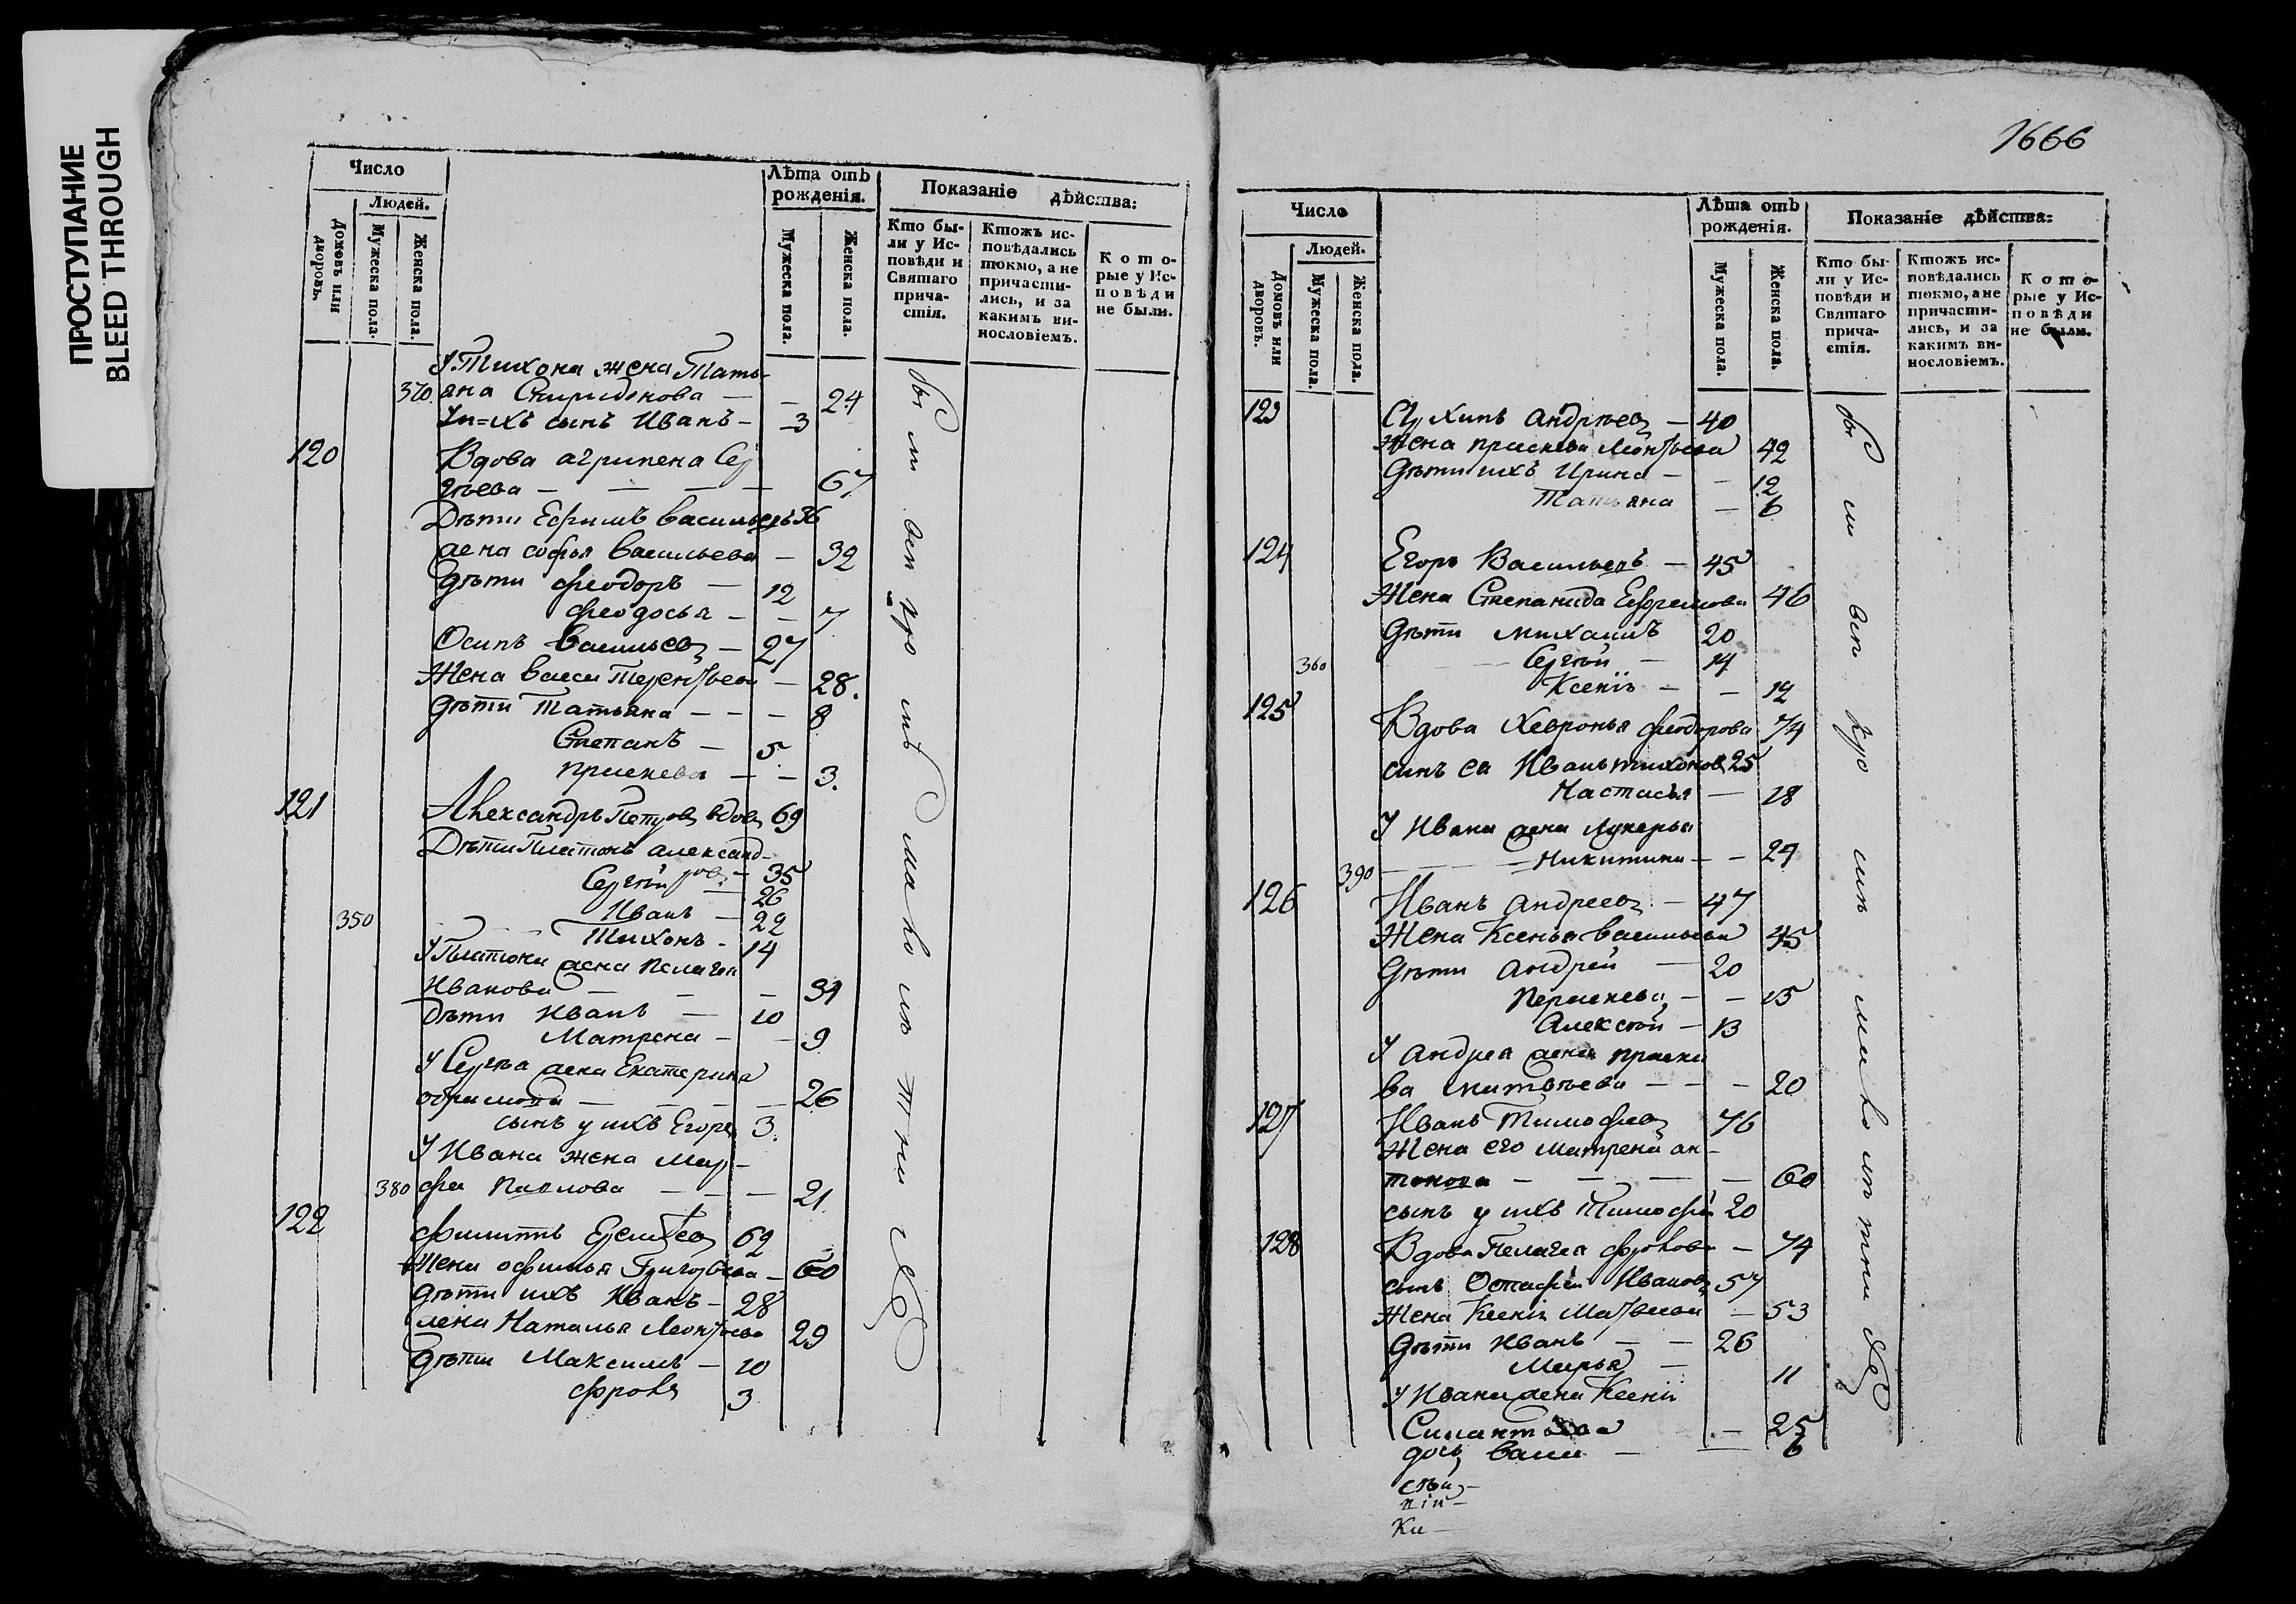 ПРОСТУПАНИЕ
BLEED THROUGH
Число
Людей.
Домовъ или дворовъ.
Мужеска пола.
Женска пола.
Лѣта отъ рожденія.
Мужеска пола.
Женска пола.
Показаніе дѣйства:
Кто были у Исповѣди и Святаго причастія.
Ктожъ исповѣдались токмо, а не причастились, и за какимъ винословіемъ.
Которые у Исповѣди не были.
У Тихона жена Тать-
370 яна Спиридонова — — 24
У нихъ сынъ Иванъ — 3
120 Вдова агрипена Сер
гѣева — — — — 67
Дѣти Ефимъ Васильевъ 36
жена софья Васильева — 32
дѣти феодоръ — 12
феодосья — — 7
Осипъ Васильевъ — 27
Жена Васса Терентьева — 28.
дѣти Татьяна — — — 8
Степанъ — 5
прасковья — — 3.
121 Александръ Петровъ вдовъ 69
Дѣти Платонъ александ-
ровъ — 35
Сергѣй — 26
Иванъ — 22
350 Тихонъ — 14
У Платона жена Пелагея
Иванова — — — 34
Дѣти Иванъ — 10
Матрена — — 9
У Сергѣя жена Екатерина
— — — — 26
сынъ у ихъ Егоръ 3.
У Ивана жена Мар-
380 фа Павлова — — — 21
122 филиппъ 62
Жена офимья Григорьева — 60
дѣти ихъ Иванъ — 28
жена Наталья Леонтьева 29
Дѣти Максимъ — 10
фролъ 3
были
1666
Число
Людей.
Домовъ или дворовъ.
Мужеска пола.
Женска пола.
Лѣта отъ рожденія.
Мужеска пола.
Женска пола.
Показаніе дѣйства:
Кто были у Исповѣди и Святаго причастія.
Ктожъ исповѣдались токмо, а не причастились, и за какимъ винословіемъ.
Которые у Исповѣди не были.
123 андрѣевъ — 40
Жена прасковья Леонтьева 42
дѣти ихъ Ирина — — 12
Татьяна — 6
124 Егоръ Васильевъ — 45
Жена Степанида Ефремова 46
дѣти михаилъ 20
360 Сергѣй — 14
Ксенія — — 12
125 Вдова Хевронья феодорова 74
сынъ ея Иванъ тихоновъ 25
Настасья — 18
У Ивана жена Лукерья
390 — Никитина — — 24
126 Иванъ андреевъ — 47
Жена Ксенья Васильева 45
дѣти андрей — 20
— — 15
Алексѣй — 13
У андрея жена праско
ва матвѣева — — — 20
127 Иванъ Тимофеевъ 76
Жена его матрена ан-
тонова — — — — 60
сынъ у ихъ Тимофей 20
128 Вдова Пелагея фролова — 74
сынъ Остафей Ивановъ 57
Жена Ксенія Матвеева — 53
дѣти Иванъ — — 26
Марья — 11
У Ивана жена Ксенія
— 25
дочь — 6
Ки-
были